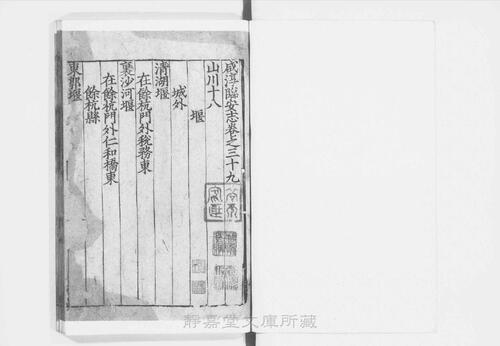 咸淳臨安志卷之三十九
山川十八
堰
城外
清湖堰
在餘杭門外稅務東
襄沙河堰
在餘杭門外仁和橋東
餘杭縣
東郭堰
靜嘉堂文庫所藏